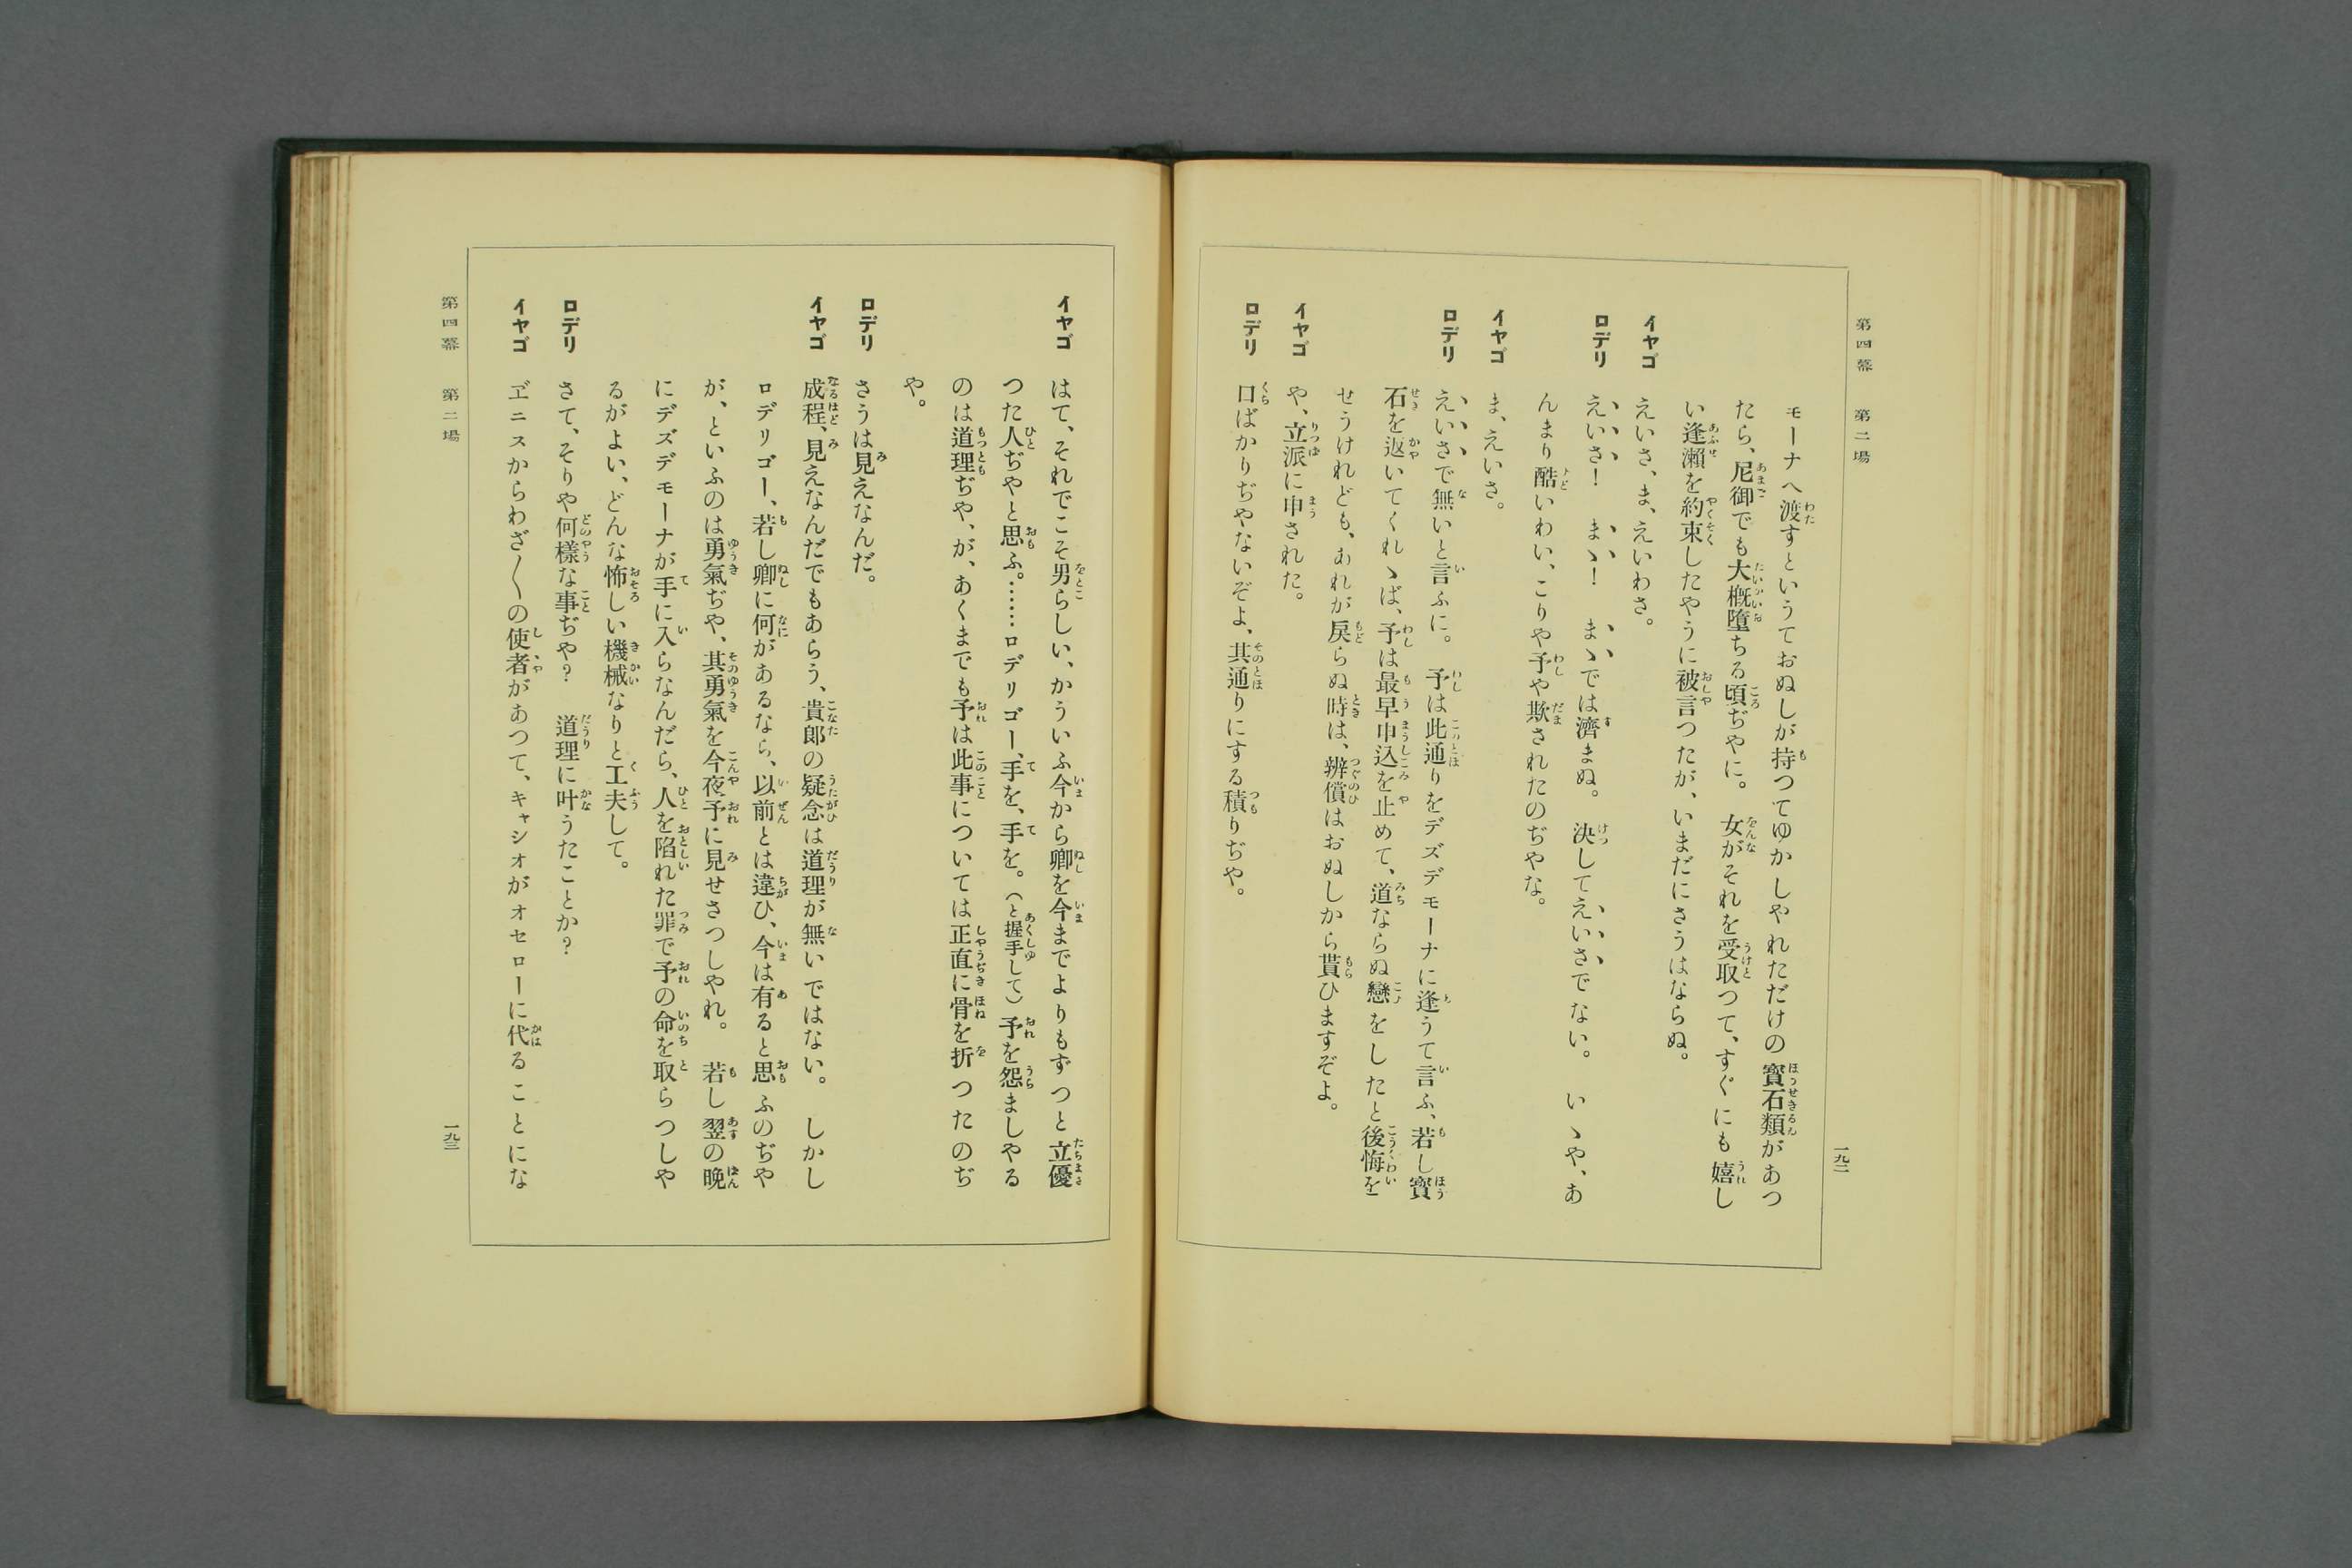 第四幕　第二場
モーナへ渡すというておぬしが持つてゆかしやれただけの寳石類があつ
たら、尼御でも大概墮ちる頃ぢやに。　女がそれを受取つて、すぐにも嬉し
い逢瀬を約束したやうに被言つたが、いまだにさうはならぬ。
イヤゴ　えいさ、ま、えいわさ。
ロデリ　えいさ！　まゝ！　まゝでは濟まぬ。　決してえいさでない。　いゝや、あ
んまり酷いわい、こりや予や欺されたのぢやな。
イヤゴ　ま、えいさ。
ロデリ　えいさで無いと言ふに。　予は此通りをデズデモーナに逢うて言ふ、若し寳
石を返いてくれゝば、予は最早申込を止めて、道ならぬ戀をしたと後悔を
せうけれども、あれが戻らぬ時は、辨償はおぬしから貰ひますぞよ。
イヤゴ　や、立派に申された。
ロデリ　口ばかりぢやないぞよ、其通りにする積りぢや。
一九二
イヤゴ　はて、それでこそ男らしい、かういふ今から卿を今までよりもずつと立優
つた人ぢやと思ふ。……ロデリゴー、手を、手を。（と握手して）予を怨ましやる
のは道理ぢや、が、あくまでも予は此事については正直に骨を折つたのぢ
や。
ロデリ　さうは見えなんだ。
イヤゴ　成程、見えなんだでもあらう、貴郎の疑念は道理が無いではない。　しかし
ロデリゴー、若し卿に何があるなら、以前とは違ひ、今は有ると思ふのぢや
が、といふのは勇氣ぢや、其勇氣を今夜予に見せさつしやれ。　若し翌の晩
にデズデモーナが手に入らなんだら、人を陷れた罪で予の命を取らつしや
るがよい、どんな怖しい機械なりと工夫して。
ロデリ　さて、そりや何樣な事ぢや？　道理に叶うたことか？
イヤゴ　ヹニスからわざ〳〵の使者があつて、キャシオがオセローに代ることにな
第四幕　第二場
一九三